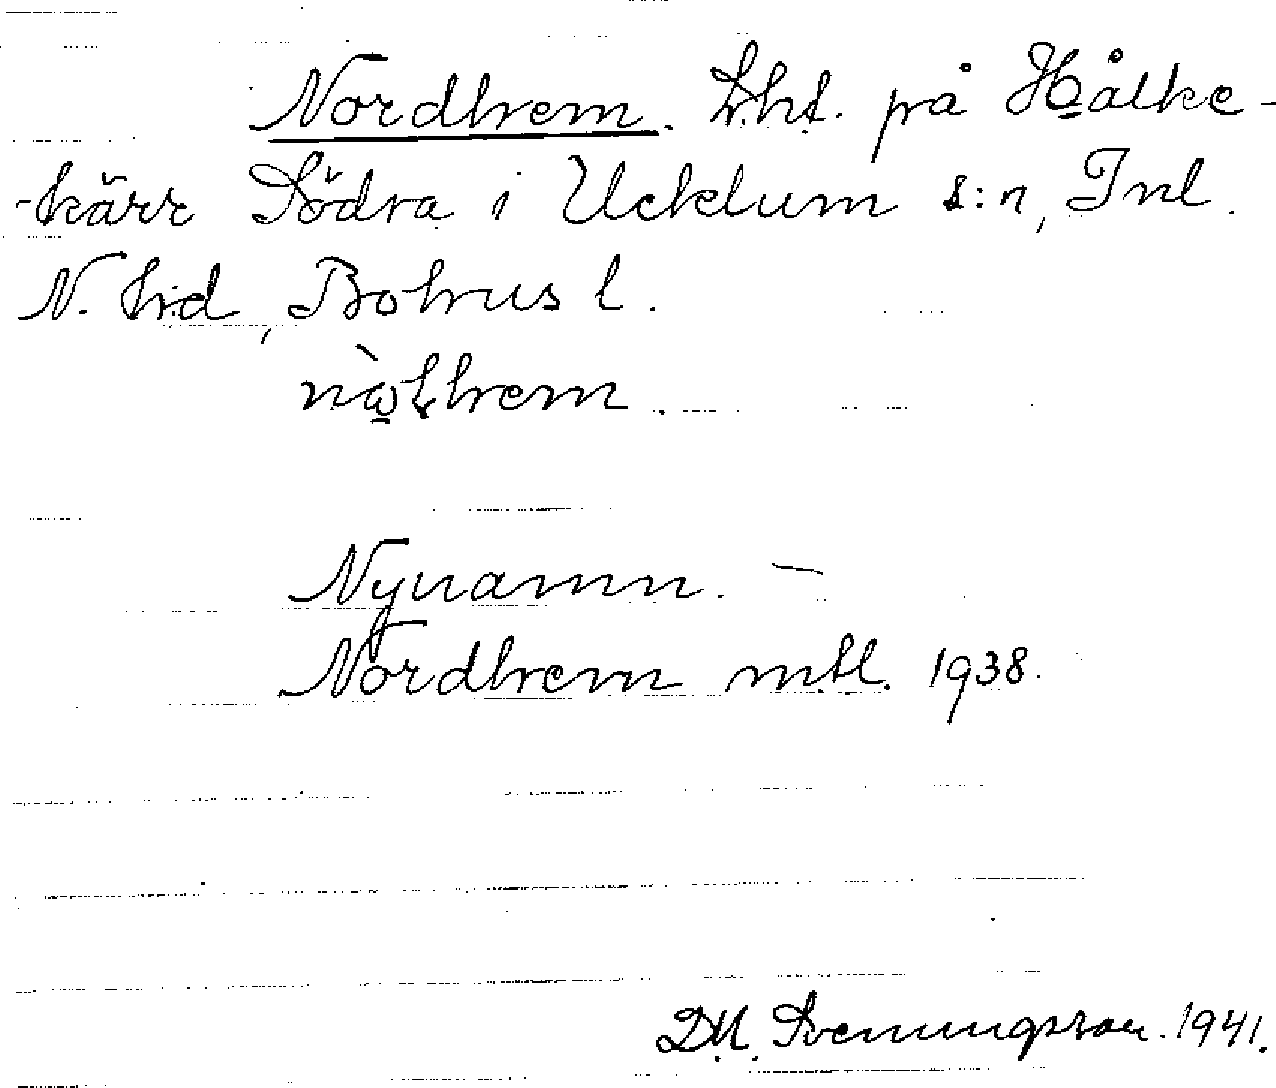 Nordhem. Lht. på Hålke-
-kärr Södra i Ucklum s:n, Inl.
N. hd, Bohus l.
Nynamn. –
Nordhem mtl. 1938.
D.M. Svenningsson. 1941.